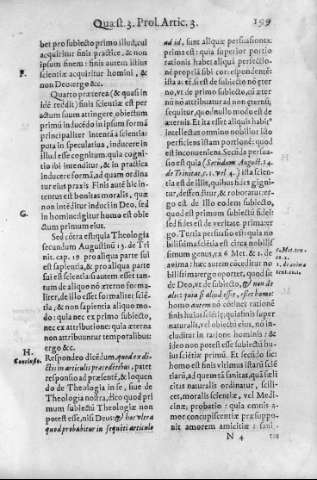 Quæst. 3. Prol. Artic. 3. 199
bet pro subiecto primo illud, cui
acquiritur finis practicæ, & non
ipsum finem: finis autem istius
scientiæ acquiritur homini, &
non Deo: ergo &c.
F.
Quarto præterea (& quasi in
idem redit) finis scientiæ est per
actum suum attingere obiectum
primum inducendo in ipsum formam
principaliter intentā à scientia:
puta in speculatiua, inducere in
illud esse cognitum, quia cogni-
tio ibi intenditur, & in practica
inducere formā, ad quam ordina-
tur eius praxis: Finis autē hic in-
tentus est bonitas moralis, quæ
non intēditur induci in Deo, sed
in homine: igitur homo est obie
ctum primum eius.
G.
Sed cōtra est: quia Theologia
secundum Augustinū 13. de Tri
nit. cap. 19 pro aliqua parte sui
est sapientia, & pro aliqua parte
sui est scientia: si autem esset tan-
tum de aliquo nō æterno formali
ter, de illo esset formaliter sciē-
tia, & non sapientia aliquo mo-
do: quia nec ex primo subiecto,
nec ex attributione: quia æterna
non attribuuntur temporalibus:
ergo &c.
H.
Conclusio.
Respondeo dicēdum, quod ex di
ctis in articulis præcedētibus, patet
responsio ad præsentē, & loquen
do de Theologia in se, siue de
Theologia nostra, dico quod pri
mum subiectū Theologiæ non
potest esse, nisi Deus: & hoc vlera
quod probabitur in sequēti articulo
ad id, sunt aliquæ persuasiones.
prima est: quia superior portio
rationis habet aliqui perfectio-
nē propriā sibi cōrespondentē:
ista nō est nisi sapientia, quæ est
de æterno, vt de subiecto, qđ æter
nū nō attribuatur ad non æternū;
sequitur, quod nullo modo est de
æternis. Et ita esset aliquis habit9
intellectus omnino nobilior isto
perficiens istam portionem: quod
est inconueniens. Secūda persua-
so est quia (Secundum August. 14.
de Trinitate, c. 1. vel 4.) ista scien-
tia est de illis, quibus fides gigni-
tur, defenditur, & roboratur: er-
go est de Illo eodem subiecto,
quod est primum subiectū fidei:
sed fides est de veritate prima: er
go. Tertia persuasio est: quia no
bilissima scientia est circa nobilis
simum genus, ex 6 Met. & 1. de
anima: hæc autem cōceditur no
bilissima: ergo oportet, quod sit
de Deo, vt de subiecto, & non de
alio: quia si aliud esset, esset homo:
homo autem nō cōtinet ratione
finis huius sciētiæ; quia finis super
naturalis, vel obiectū eius, nō in-
cluditur in ratione hominis: &
ideo non potest esse subiectū hu
ius sciētiæ primū. Et secūdo sic:
homo est finis vltimus istarū sciē
tiarū, ad quem tā sanitas, quā fœli
citas naturalis ordinatur, scili-
cet, moralis scientiæ, vel Medi-
cinæ; probatio: quia omnis a-
mor concupiscentiæ præsuppo-
nit amorem amicitiæ:
c. Met. tex.
co. 2.
1. de anima
text. co. 1.
N 4